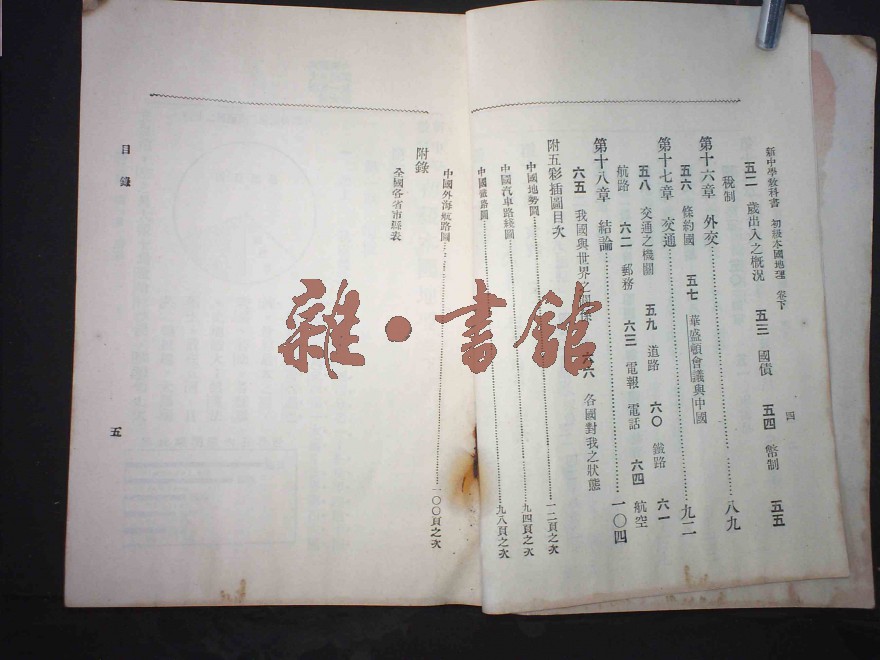 新中學教科書 初級本國地理 卷下 四
五二 歲出入之概況 五三 國債 五四 幣制 五五
稅制
第十六章 外交 八九
五六 條約國 五七 華盛頓會議與中國
第十七章 交通 九二
五八 交通之機關 五九 道路 六〇 鐵路 六一
航路 六二 郵務 六三 電報 電話 六四 航空
第十八章 結論 一〇四
六五 我國與世界之關係 六六 各國對我之狀態
附五彩插圖目次
中國地勢圖 一二頁之次
中國汽車路綫圖 九四頁之次
中國鐵路圖 九八頁之次
中國外海航路圖 一〇〇頁之次
附錄
全國各省市縣表
目錄 五
雜·書館